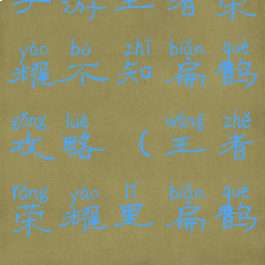 手游王者荣
yào bù zhī biǎn què
耀不知扁鹊
gōng lüè wáng zhě
攻略（王者
róng yào lǐ biǎn què
荣耀里扁鹊